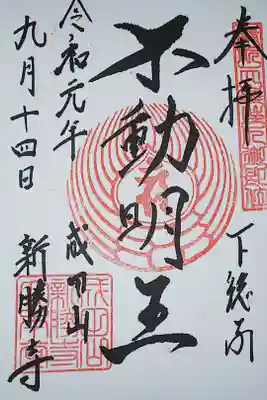 奉拝
下総国
不動明王
成田山
新勝寺
令和元年
九月十四日